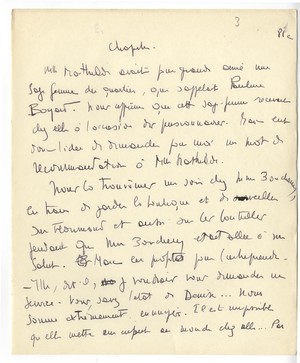 3
Chapitre
Mme Mathilde avait pour grande amie une
sage-femme du quartier, qui s'appelait Pauline
Boyard. Nous apprîmes que cette sage-femme recevait
chez elle à l'occasion des pensionnaires. Marc eut
donc l'idée de demander pour moi un mot de
recommandation à Mme Mathilde.
Nous la trouvâmes un soir chez Mme
en train de garder la boutique et de veiller
sur et aussi sur les bouteilles
pendant que Mme était allée à un
Salut. Marc en profita pour l'entreprendre.
- dit-il, je voudrais vous demander un
service. Vous savez l'état de Denise... Nous
sommes extrêmement ennuyés. Il est impossible
qu'elle mette un enfant au monde chez elle... Par